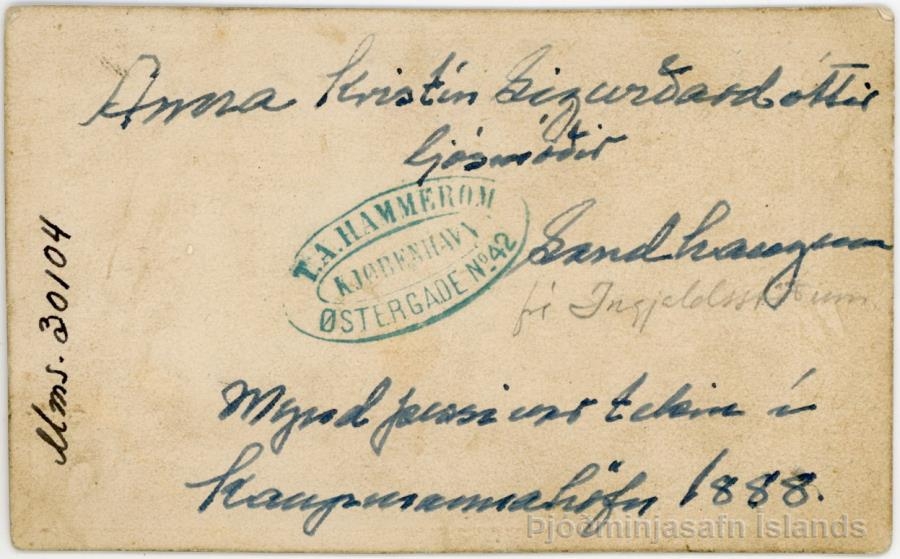 Anna Kristín Sigurðardóttir
ljósmóðir
T.A. HAMMEROM
KJØBENHAVN
ØSTERGADE No 42
Sandhaugum
frá Ingjaldsstöðum
Mynd þessi var tekin í
Kaupmannahöfn 1888.
Mms. 30104
Þjóðminjasafn Íslands